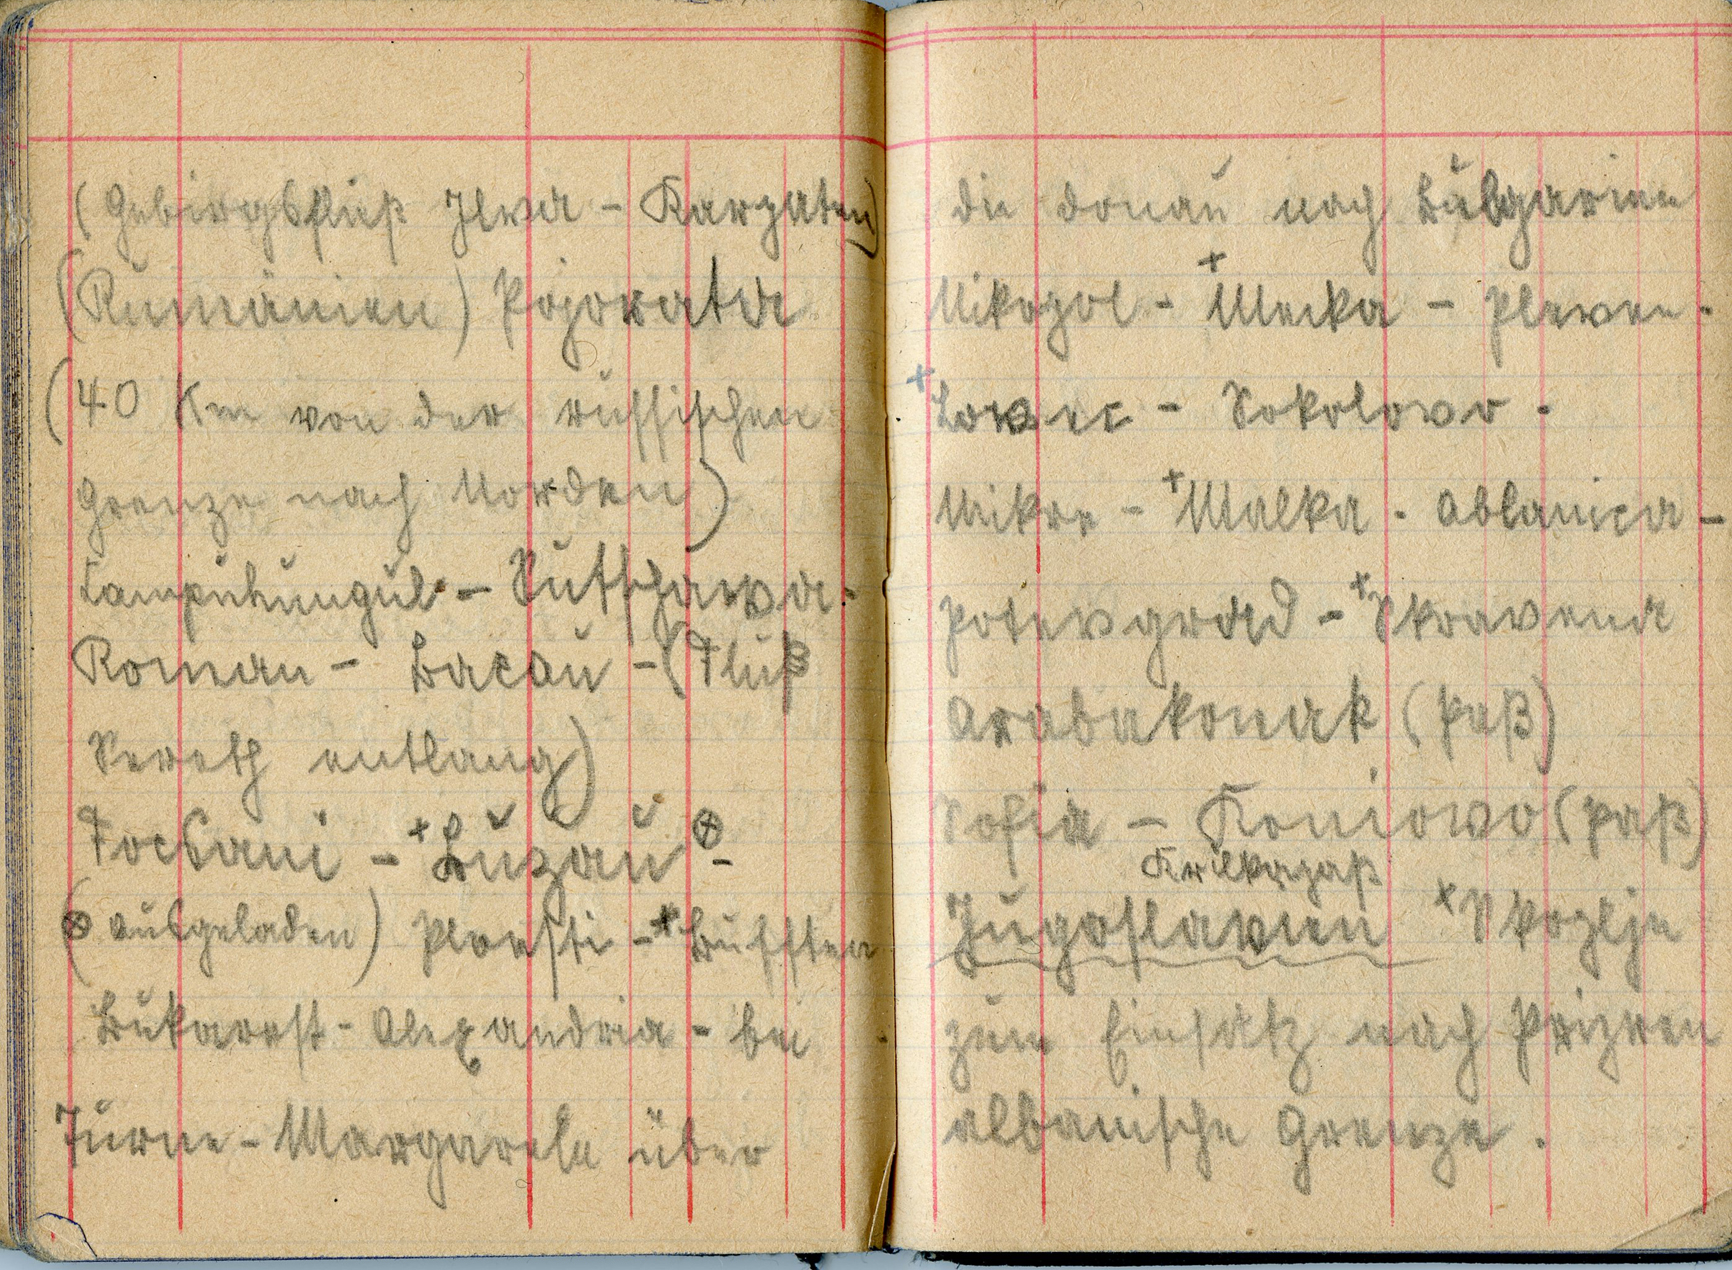 (Gebirgsfluß Ilva - Karpaten)
(Rumänien) Pojorata
(40 Km von der russischen
Grenze nach Norden)
Campuhungul - Sutschawa -
Roman - Bacau - (Fluß
Sereth entlang)
Focsani - + Buzau ⊗ -
(⊗ ausgeladen) Ploesti - + Bufften
Bukarest - Alexandria - bei
Turne - Margarele über
die Donau nach Bulgarien
Nikopol - + Mecka - Plewen -
+ Lowec - Sokolowo -
Mikre - + Malka - Ablanica -
Potewgrad - + Skravena
Arabakonak (Paß)
Sofia - Koniowo (Paß)
Krilkapaß
Jugoslavien + Skoplje
zum Einsatz nach Prizren
albanische Grenze.